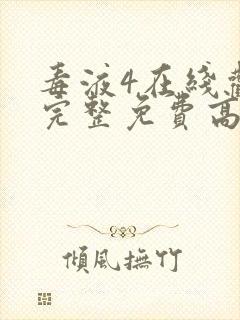 毒液4在綫
完整免費高
傾風撫竹